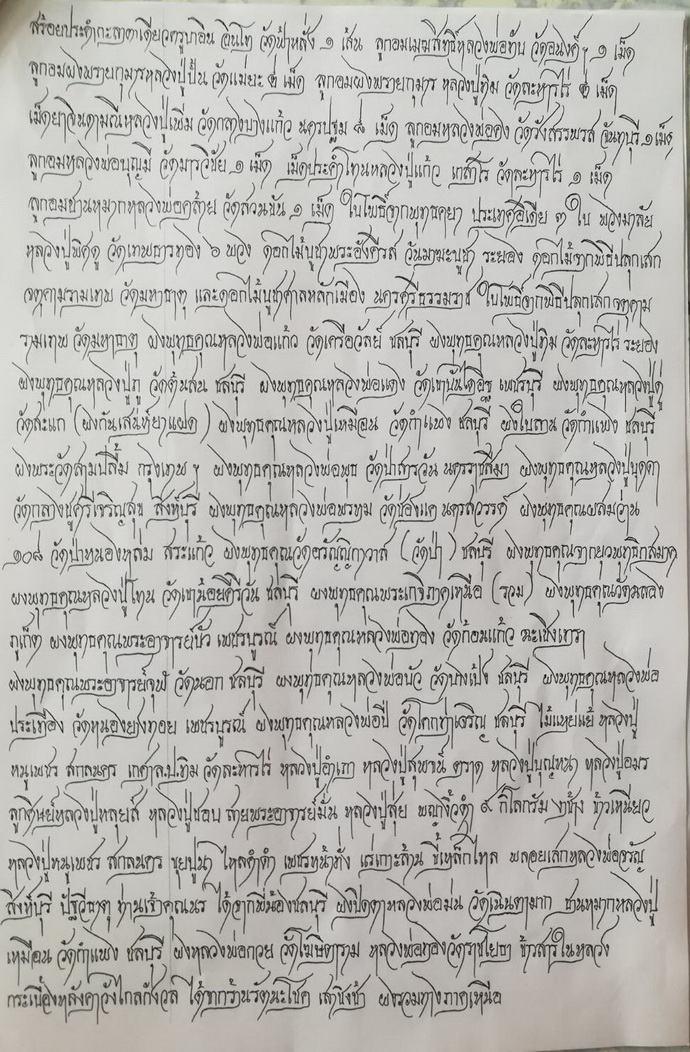 สร้อยประคำกะลาตาเดียวครูบาอิน อินโท วัดฟ้าหลั่ง ๑ เส้น ลูกอมเมฆสิทธิ์หลวงพ่อทับ วัดอนงค์ฯ ๑ เม็ด
ลูกอมผงพรายกุมารหลวงปู่ปั่น วัดแม่ยะ ๒ เม็ด ลูกอมผงพรายกุมาร หลวงปู่ทิม วัดละหารไร่ ๒ เม็ด
เม็ดยาสินดามณีหลวงปู่เพิ่ม วัดกลางบางแก้ว นครปฐม ๘ เม็ด ลูกอมหลวงพ่อคง วัดวังสรรพรส จันทบุรี ๑ เม็ด
ลูกอมหลวงพ่อบุญมี วัดมารวิชัย ๑ เม็ด เม็ดประคำโทนหลวงปู่แก้ว เกสาโร วัดละหารไร่ ๑ เม็ด
ลูกอมชานหมากหลวงพ่อคล้าย วัดสวนขัน ๑ เม็ด ใบโพธิ์จากพุทธคยา ประเทศอินเดีย ๓ ใบ พวงมาลัย
หลวงปู่พิศดู วัดเทพธารทอง ๖ พวง ดอกไม้บูชาพระอังคีรส วันมาฆะบูชา ระยอง ดอกไม้จากพิธีปลุกเสก
จตุคามรามเทพ วัดมหาธาตุ และดอกไม้บูชาศาลหลักเมือง นครศรีธรรมราช ใบโพธิ์จากพิธีปลุกเสกจตุคาม
รามเทพ วัดมหาธาตุ ผงพุทธคุณหลวงพ่อแก้ว วัดเครือวัลย์ ชลบุรี ผงพุทธคุณหลวงปู่ทิม วัดละหารไร่ ระยอง
ผงพุทธคุณหลวงปู่ภู วัดต้นสน ชลบุรี ผงพุทธคุณหลวงพ่อแดง วัดเขาบันไดอิฐ เพชรบุรี ผงพุทธคุณหลวงปู่ดู่
วัดสะแก (ผงกันเสน่ห์ยาแฝด) ผงพุทธคุณหลวงปู่เหมือน วัดกำแพง ชลบุรี ผงใบลาน วัดกำแพง ชลบุรี
ผงพระวัดสามปลื้ม กรุงเทพฯ ผงพุทธคุณหลวงพ่อพุธ วัดป่าสาลวัน นครราชสีมา ผงพุทธคุณหลวงปู่บุดดา
วัดกลางชูศรีเจริญสุข สิงห์บุรี ผงพุทธคุณหลวงพ่อพรหม วัดช่องแค นครสวรรค์ ผงพุทธคุณผสมว่าน
๑๐๘ วัดป่าหนองหล่ม สระแก้ว ผงพุทธคุณวัดอรัญญิกาวาส (วัดป่า) ชลบุรี ผงพุทธคุณจากยุวพุทธิกสมาคม
ผงพุทธคุณหลวงปู่โทน วัดเขาน้อยคีรีวัน ชลบุรี ผงพุทธคุณพระเกจิภาคเหนือ (รวม) ผงพุทธคุณวัดฉลอง
ภูเก็ต ผงพุทธคุณพระอาจารย์บัว เพชรบูรณ์ ผงพุทธคุณหลวงพ่อทอง วัดก้อนแก้ว ฉะเชิงเทรา
ผงพุทธคุณพระอาจารย์จุฬ วัดนอก ชลบุรี ผงพุทธคุณหลวงพ่อบัว วัดบางเป้ง ชลบุรี ผงพุทธคุณหลวงพ่อ
ประเทือง วัดหนองย่างทอย เพชรบูรณ์ ผงพุทธคุณหลวงพ่อปี วัดโคกท่าเจริญ ชลบุรี ไม้แหย่แย้ หลวงปู่
หนูเพชร สกลนคร เกศา ล.ป.ทิม วัดละหารไร่ หลวงปู่อำเภา หลวงปู่สุพจน์ ตราด หลวงปู่บุญหนา หลวงปู่อมร
ลูกศิษย์หลวงปู่หลุยส์ หลวงปู่ชอบ สายพระอาจารย์มั่น หลวงปู่สุย พญางิ้วดำ ๙ กิโลกรัม งาช้าง ข้าวเหนียว
หลวงปู่หนูเพชร สกลนคร ขุยปูนา ไหลดำดำ เพชรหน้าทั่ง แร่เกาะล้าน ขี้เหล็กไหล พลอยเสกหลวงพ่อจรัญ
สิงห์บุรี ปัฐวีธาตุ ท่านเจ้าคุณนร ได้จากพี่น้องชลบุรี ผงปิดตาหลวงพ่อม่น วัดเนินตามาก ชานหมากหลวงปู่
เหมือน วัดกำแพง ชลบุรี ผงหลวงพ่อกวย วัดโฆษิตาราม หลวงพ่อทองวัดราชโยธา ข้าวสารในหลวง
กระเบื้องหลังคาวังไกลกังวล ได้จากร้านรัตนะโชค เสาชิงช้า ผงรวมทางภาคเหนือ